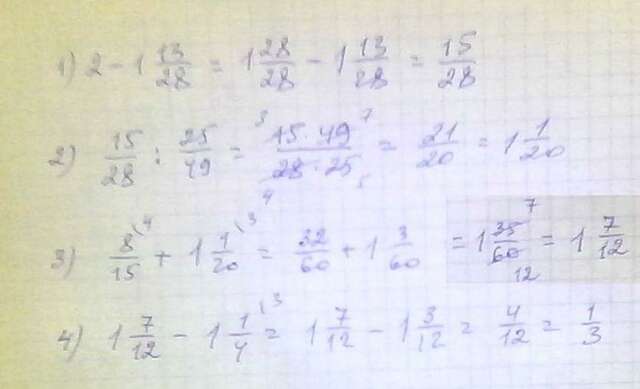 1) 2 - 1 13/28 = 1 28/28 - 1 13/28 = 15/28
2) 15/28 : 25/49 = ³ 15 · 49 ⁷ / ₄ 28 · 25 ₅ = 21/20 = 1 1/20
3) 8/15 \4 + 1 1/20 \3 = 32/60 + 1 3/60 = 1 35/60 7 12 = 1 7/12
4) 1 7/12 - 1 1/4 \3 = 1 7/12 - 1 3/12 = 4/12 = 1/3